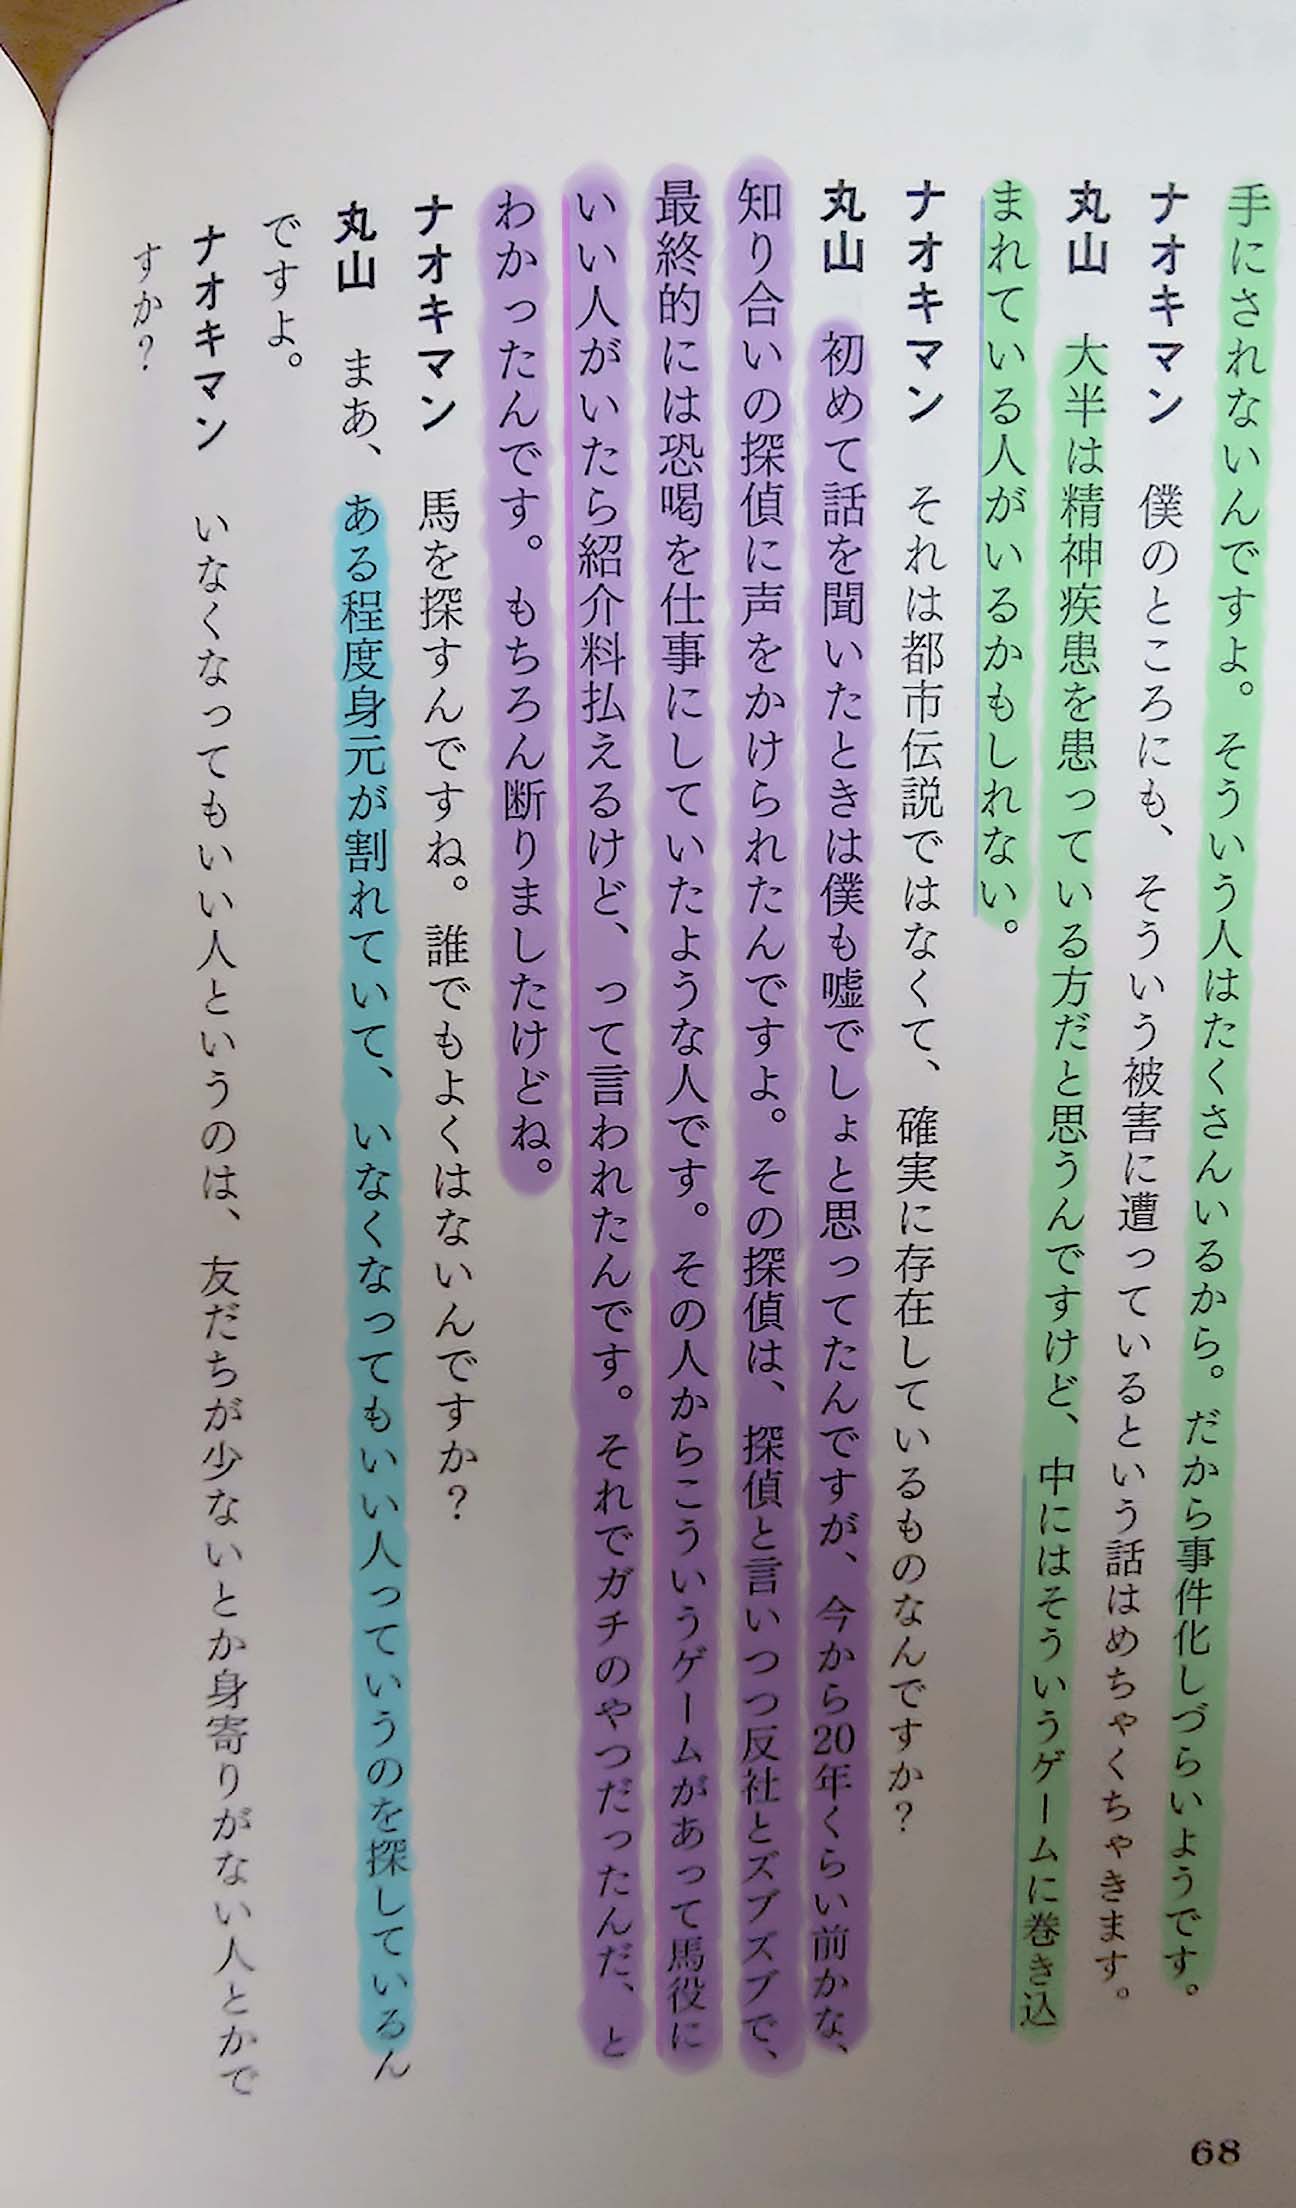 手にされないんですよ。そういう人はたくさんいるから。だから事件化しづらいようです。
ナオキマン　僕のところにも、そういう被害に遭っているという話はめちゃくちゃきます。
丸山　大半は精神疾患を患っている方だと思うんですけど、中にはそういうゲームに巻き込
まれている人がいるかもしれない。
ナオキマン　それは都市伝説ではなくて、確実に存在しているものなんですか？
丸山　初めて話を聞いたときは僕も嘘でしょと思ってたんですが、今から20年くらい前かな、
知り合いの探偵に声をかけられたんですよ。その探偵は、探偵と言いつつ反社とズブズブで、
最終的には恐喝を仕事にしていたような人です。その人からこういうゲームがあって馬役に
いい人がいたら紹介料払えるけど、って言われたんです。それでガチのやつだったんだ、と
わかったんです。もちろん断りましたけどね。
ナオキマン　馬を探すんですね。誰でもよくはないんですか？
丸山　まあ、ある程度身元が割れていて、いなくなってもいい人っていうのを探しているん
ですよ。
ナオキマン　いなくなってもいい人というのは、友だちが少ないとか身寄りがない人とかで
すか？
68